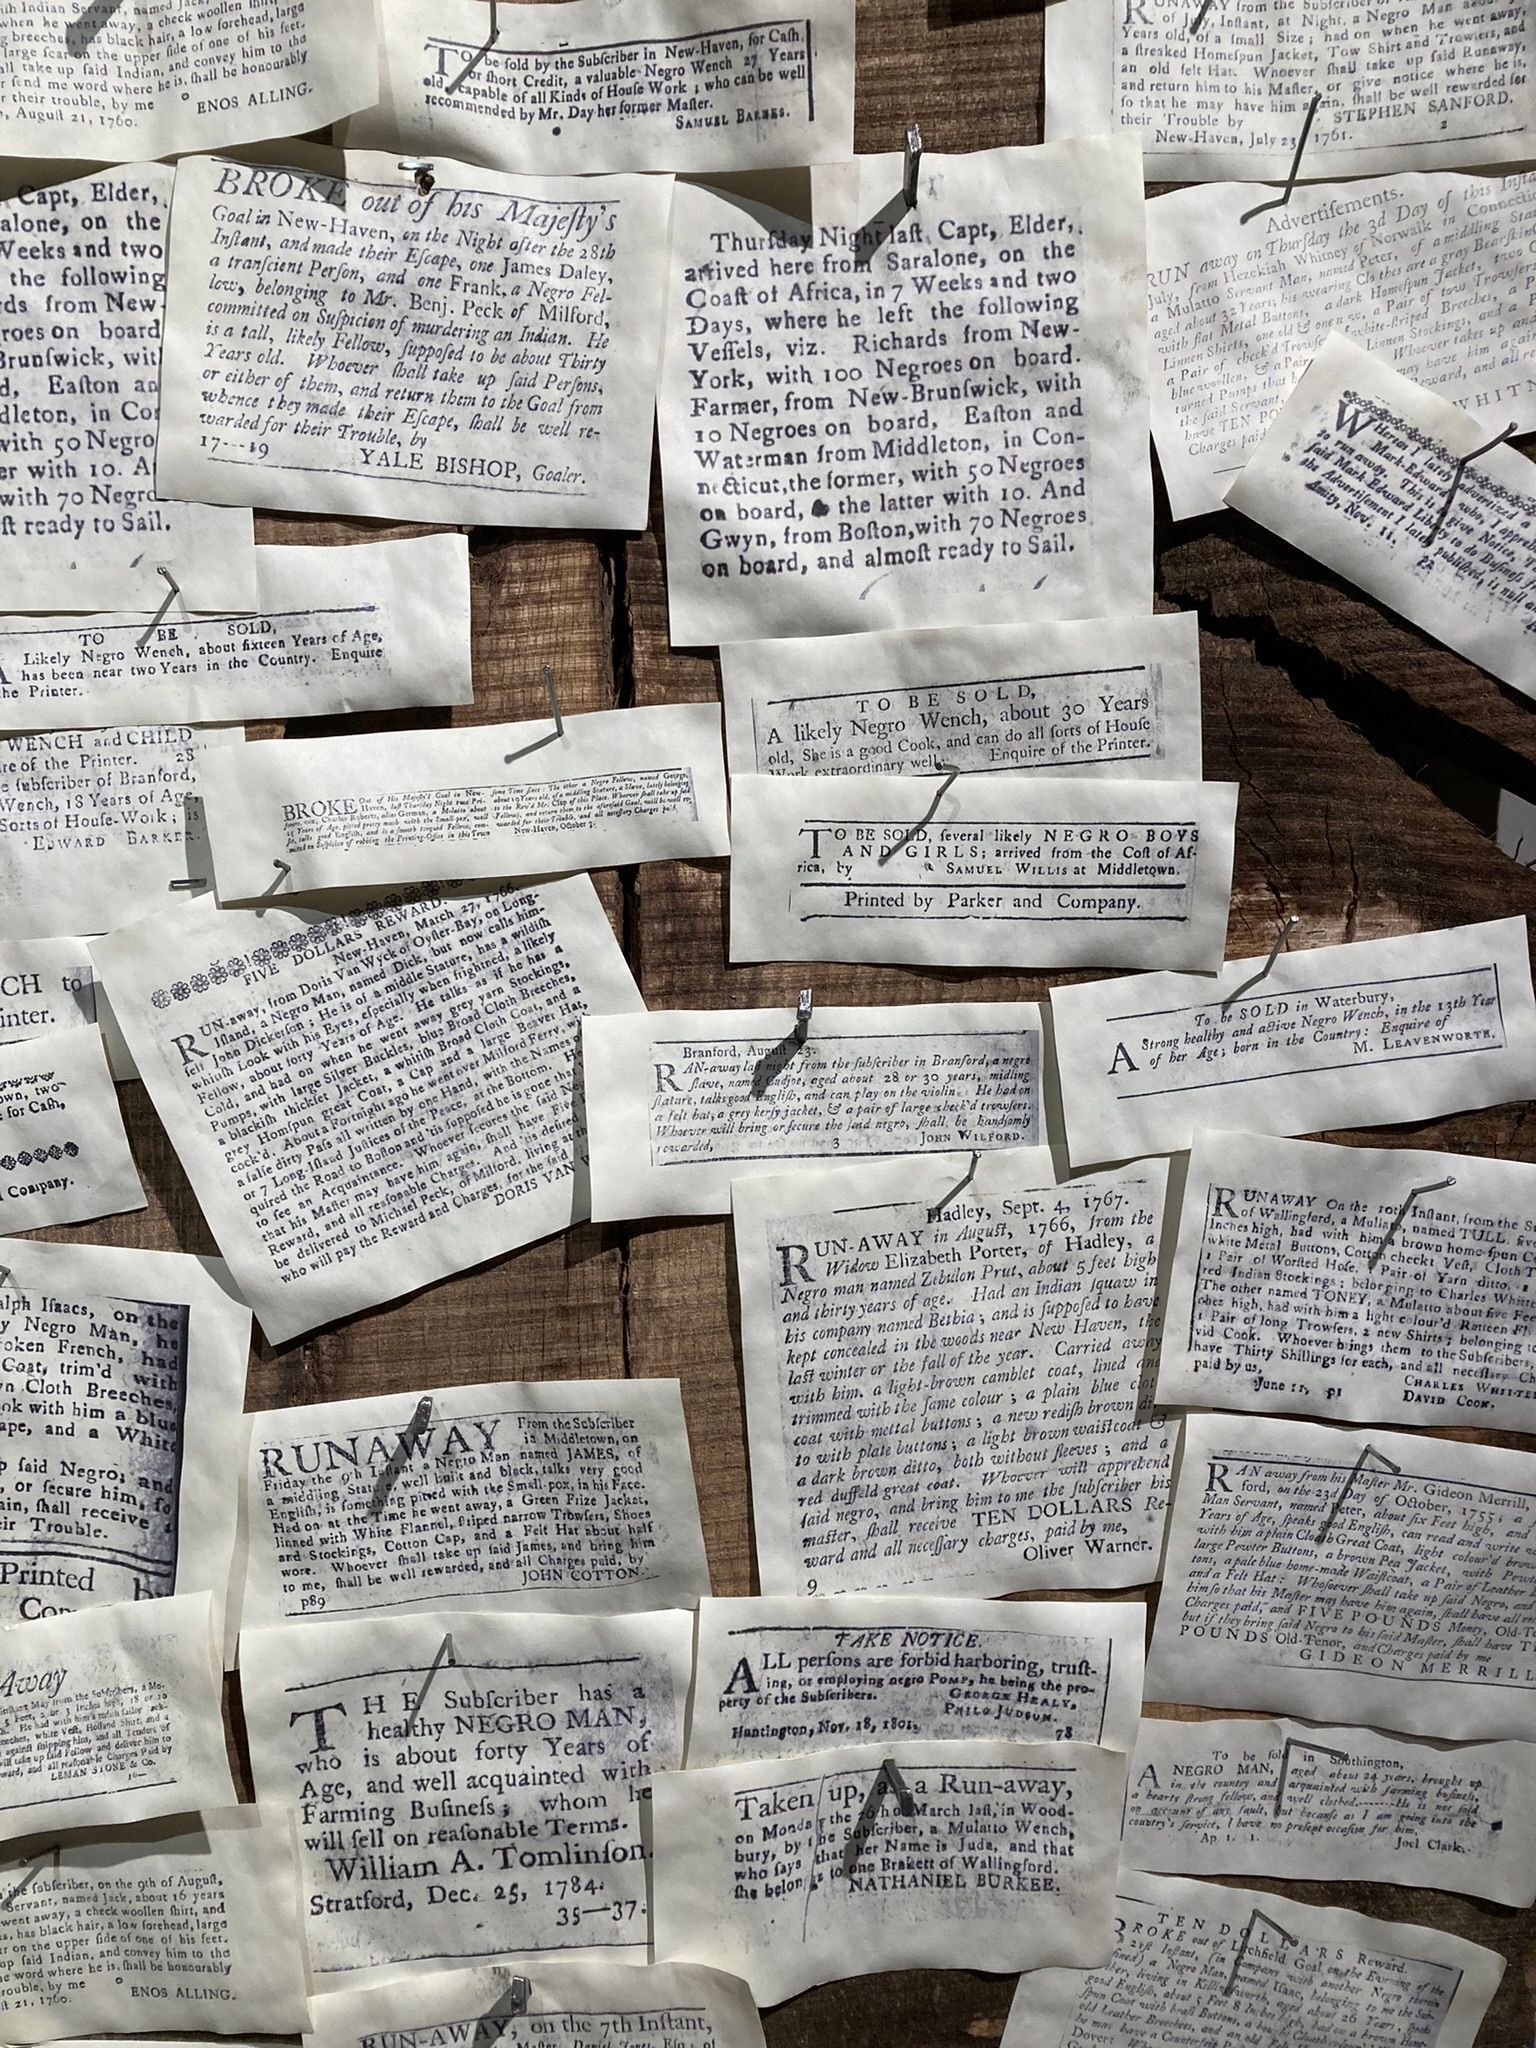 ish Indian Servant, named Jack,
when he went away, a check woollen shirt,
g breeches, has black hair, a low forehead, large
large scar on the upper side of one of his feet.
all take up said Indian, and convey him to the
r send me word where he is, shall be honourably
r their trouble, by me ENOS ALLING.
, August 21, 1760.
TO be sold by the Subſcriber in New-Haven, for Caſh
or ſhort Credit, a valuable Negro Wench 27 Years
old, capable of all Kinds of Houſe Work ; who can be well
recommended by Mr. Day her former Maſter.
SAMUEL BARNES.
RUNAWAY from the Subſcriber
of July, Inſtant, at Night, a Negro Man
Years old, of a ſmall Size ; had on when he went away,
a ſtreaked Homeſpun Jacket, Tow Shirt and Trowſers, and
an old felt Hat. Whoever ſhall take up ſaid Runaway,
and return him to his Maſter, or give notice where he is,
ſo that he may have him again, ſhall be well rewarded for
their Trouble by STEPHEN SANFORD.
New-Haven, July 23, 1761. 2
Capt, Elder,
alone, on the
Weeks and two
the following
rds from New-
groes on board
Brunſwick, wit
d, Eaſton an
dleton, in Co
with 50 Negro
er with 10. A
with 70 Negro
ſt ready to Sail.
BROKE out of his Majeſty's
Goal in New-Haven, on the Night after the 28th
Inſtant, and made their Eſcape, one James Daley,
a tranſcient Perſon, and one Frank, a Negro Fel-
low, belonging to Mr. Benj. Peck of Milford,
committed on Suſpicion of murdering an Indian. He
is a tall, likely Fellow, ſuppoſed to be about Thirty
Years old. Whoever ſhall take up ſaid Perſons,
or either of them, and return them to the Goal from
whence they made their Eſcape, ſhall be well re-
warded for their Trouble, by
17---19 YALE BISHOP, Goaler.
Thurſday Night laſt Capt, Elder,
arrived here from Saralone, on the
Coaſt of Africa, in 7 Weeks and two
Days, where he left the following
Veſſels, viz. Richards from New-
York, with 100 Negroes on board.
Farmer, from New-Brunſwick, with
10 Negroes on board, Eaſton and
Waterman from Middleton, in Con-
necticut, the former, with 50 Negroes
on board, the latter with 10. And
Gwyn, from Boſton, with 70 Negroes
on board, and almoſt ready to Sail.
Advertiſements.
RUN away on Thurſday the 3d Day of this Inſta
July, from Hezekiah Whitney of Norwalk in Connectic
a Mulatto Servant Man, named Peter, of a middling Sta
aged about 32 Years; his wearing Clothes are a gray Bearſkin
with flat Metal Buttons, a dark Homeſpun Jacket, two
Linnen Shirts, one old & one new, a Pair of tow Trowſers
a Pair of check'd Trowſers white-ſtriped Breeches, a P
blue woollen, & a Pair Linnen Stockings, and a
turned Pumps that h Whoever takes up
the ſaid Servant, may have him again
have TEN PO
Charges paid WHITN
WHereas I lately advertized a
Mark-Edward who, I appreh
to run away. This is to give Notice, T
ſaid Mark-Edward Liberty to do Buſineſs f
the Advertiſement I lately publiſhed, is null an
Amity, Nov. 11. 22
TO BE SOLD,
A Likely Negro Wench, about ſixteen Years of Age,
has been near two Years in the Country. Enquire
the Printer.
WENCH and CHILD
re of the Printer. 28
e ſubſcriber of Branford,
Wench, 18 Years of Age,
Sorts of Houſe-Work ; is
EDWARD BARKER.
BROKE Out of His Majeſty's Goal in New-
Haven, laſt Thurſday Night two Pri-
ſoners, one, Charles Roberts, alias German, a Mulatto about
25 Years of Age, pitted pretty much with the Small-pox, well
ſet, talks good Engliſh, and is a ſmooth tongued Fellow, com-
mitted on Suſpicion of robbing the Printing-Office in this Town
ſome Time ſince : The other a Negro Fellow, named George,
about 19 Years old, of a middling Stature, a Slave, lately belonging
to the Rev'd Mr. Clap of this Place. Whoever ſhall take up ſaid
Fellows, and return them to the aforeſaid Goal, will be well re-
warded for their Trouble, and all neceſſary Charges paid.
New-Haven, October 7.
TO BE SOLD,
A likely Negro Wench, about 30 Years
old, She is a good Cook, and can do all ſorts of Houſe
Work extraordinary well. Enquire of the Printer.
TO BE SOLD, ſeveral likely NEGRO BOYS
AND GIRLS; arrived from the Coſt of Af-
rica, by SAMUEL WILLIS at Middletown.
Printed by Parker and Company.
To be SOLD in Waterbury,
A Strong healthy and active Negro Wench, in the 13th Year
of her Age; born in the Country: Enquire of
M. LEAVENWORTH.
CH to
inter.
own, two
t for Caſh,
Company.
FIVE DOLLARS REWARD.
New-Haven, March 27, 1766.
RUN-away, from Doris Van Wyck of Oyſter-Bay, on Long-
Iſland, a Negro Man, named Dick, but now calls him-
ſelf John Dickerſon ; He is of a middle Stature, has a wildiſh
whitiſh Look with his Eyes, eſpecially when frightned, a likely
Fellow, about forty Years of Age. He talks as if he has a
Cold, and had on when he went away grey yarn Stockings,
Pumps, with large Silver Buckles, blue Broad Cloth Breeches,
a blackiſh thickſet Jacket, a whitiſh Broad Cloth Coat, and a
grey Homſpun great Coat, a Cap and a large Beaver Hat,
cock'd. About a Fortnight ago he went over Milford Ferry, wi
a falſe dirty Paſs all written by one Hand, with the Names of
or 7 Long-Iſland Juſtices of the Peace, at the Bottom. H
quired the Road to Boſton and 'tis ſuppoſed he is gone tha
to ſee an Acquaintance. Whoever ſecures the ſaid Ne
that his Maſter may have him again, ſhall have Five
Reward, and all reaſonable Charges. And 'tis deſired
be delivered to Michael Peck, of Milford, living at the
who will pay the Reward and Charges, for the ſaid
DORIS VAN W
Branford, August 23.
RAN-away laſt night from the ſubſcriber in Branford, a negro
ſlave, named Cudjoe, aged about 28 or 30 years, midling
ſtature, talks good Engliſh, and can play on the violin. He had on
a felt hat, a grey kerſy jacket, & a pair of large check'd trowſers.
Whoever will bring or ſecure the ſaid negro, ſhall, be handſomly
rewarded, 3 JOHN WILFORD.
Hadley, Sept. 4, 1767.
RUN-AWAY in Auguſt, 1766, from the
Widow Elizabeth Porter, of Hadley, a
Negro man named Zebulon Prut, about 5 feet high
and thirty years of age. Had an Indian ſquaw in
his company named Bethia ; and is ſuppoſed to have
kept concealed in the woods near New Haven, the
laſt winter or the fall of the year. Carried away
with him. a light-brown camblet coat, lined and
trimmed with the ſame colour ; a plain blue clot
coat with mettal buttons ; a new rediſh brown di-
to with plate buttons ; a light brown waiſtcoat &
a dark brown ditto, both without ſleeves ; and a
red duffeld great coat. Whoever will apprehend
ſaid negro, and bring him to me the ſubſcriber his
maſter, ſhall receive TEN DOLLARS Re-
ward and all neceſſary charges, paid by me,
Oliver Warner.
9
RUNAWAY On the 10th Inſtant, from the Su
of Wallingford, a Mulatto, named TULL. five
Inches high, had with him a brown home-ſpun C
white Metal Buttons, Cotton checkt Veſt, Cloth T
1 Pair of Worſted Hoſe, 1 Pair of Yarn ditto, 1
red Indian Stockings ; belonging to Charles Whittel
The other named TONEY, a Mulatto about five Fee
ches high, had with him a light colour'd Ratteen Fl
1 Pair of long Trowſers, 2 new Shirts ; belonging to
vid Cook. Whoever brings them to the Subſcribers,
have Thirty Shillings for each, and all neceſſary Ch
paid by us,
CHARLES WHITTEL
June 11, DAVID COOK.
alph Iſaacs, on the
y Negro Man, he
roken French, had
Coat, trim'd with
n Cloth Breeches,
ok with him a blue
ape, and a White
p ſaid Negro, and
, or ſecure him, ſo
ain, ſhall receive
eir Trouble.
Printed by
Com
RUNAWAY From the Subſcriber
in Middletown, on
Friday the 9th Inſtant a Negro Man named JAMES, of
a middling, Stature, well built and black, talks very good
Engliſh, is ſomething pitted with the Small-pox, in his Face.
Had on at the Time he went away, a Green Frize Jacket,
linned with White Flannel, ſtriped narrow Trowſers, Shoes
and Stockings, Cotton Cap, and a Felt Hat about half
wore. Whoever ſhall take up ſaid James, and bring him
to me, ſhall be well rewarded, and all Charges paid, by
p89 JOHN COTTON.
RAN away from his Maſter Mr. Gideon Merrill,
ford, on the 23d Day of October, 1755 ; a
Man Servant, named Peter, about ſix Feet high, and
Years of Age, ſpeaks good Engliſh, can read and write
with him a plain Cloth Great Coat, light colour'd brow
large Pewter Buttons, a brown Pea Jacket, with Pewt
tons, a pale blue home-made Waiſtcoat, a Pair of Leather
and a Felt Hat : Whoſoever ſhall take up ſaid Negro, and
him ſo that his Maſter may have him again, ſhall have all
Charges paid, and FIVE POUNDS Money, Old-Te
but if they bring ſaid Negro to his ſaid Maſter, ſhall have T
POUNDS Old-Tenor, and Charges paid by me
GIDEON MERRILL
Away
LEMAN STONE & Co.
THE Subſcriber has a
healthy NEGRO MAN,
who is about forty Years of
Age, and well acquainted with
Farming Buſineſs ; whom he
will ſell on reaſonable Terms.
William A. Tomlinſon.
Stratford, Dec. 25, 1784.
35—37.
TAKE NOTICE.
ALL perſons are forbid harboring, truſt-
ing, or employing negro POMP, he being the pro-
perty of the Subſcribers. GEORGE HEALY,
PHILO JUDSON.
Huntington, Nov. 18, 1801. 78
Taken up, as a Run-away,
on Monday the 26th of March laſt, in Wood-
bury, by the Subſcriber, a Mulatto Wench,
who ſays that her Name is Juda, and that
ſhe belongs to one Brakett of Wallingford.
NATHANIEL BURKEE.
To be ſold in Southington,
A NEGRO MAN, aged about 24 years, brought up
in the country and acquainted with farming buſineſs,
a hearty ſtrong fellow, and well clothed.------He is not ſold
on account of any fault, but becauſe as I am going into the
country's ſervice, I have no preſent occaſion for him.
Ap. 1. 1. Joel Clark.
the ſubſcriber, on the 9th of Auguſt,
Servant, named Jack, about 16 years
went away, a check woollen ſhirt, and
s, has black hair, a low forehead, large
r on the upper ſide of one of his feet.
up ſaid Indian, and convey him to the
e word where he is, ſhall be honourably
rouble, by me ENOS ALLING.
ſt 21, 1760.
TEN DOLLARS Reward.
BROKE out of Litchfield Goal, on the Evening of the
21ſt Inſtant, (in Company with another Negro therein
fined) a Negro Man, named Iſaac, belonging to me the Sub-
ſcriber, living in Killingſworth, aged about 26 Years, ſpeaks
good Engliſh, about 5 Feet 8 Inches high, had on a brown Hom-
ſpun Coat with braſs Buttons,
old Leather Breeches, and an old Felt
he may have a Counterfeit
Dover:
RUN-AWAY, on the 7th Inſtant,
Maſter, Daniel Jones, Eſq; of